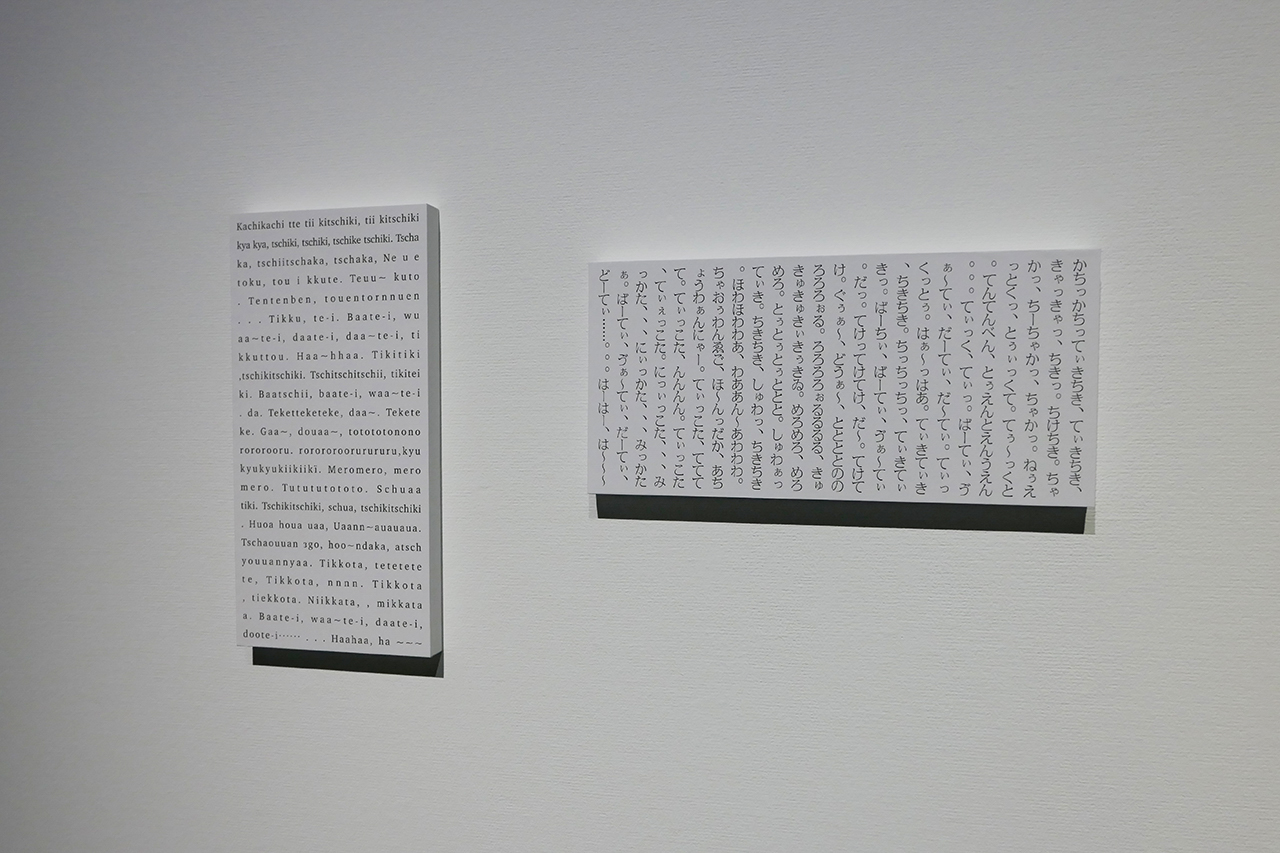 Kachikachi tte tii kitschiki, tii kitschiki
kya kya, tschiki, tschiki, tschike tschiki. Tscha
ka, tschiitschaka, tschaka, Ne u e
toku, tou i kkute. Teuu~ kuto
. Tentenben, touentornnuen
. . . Tikku, te-i. Baate-i, wu
aa~te-i, daate-i, daa~te-i, ti
kkuttou. Haa~hhaa. Tikitiki
,tschikitschiki. Tschitschitschii, tikitei
ki. Baatschii, baate-i, waa~te-i
. da. Teketteketeke, daa~. Tekete
ke. Gaa~, douaa~, totototonono
rororooru. rorororoorurururu,kyu
kyukyukyukiikiiki. Meromero, mero
mero. Tutututototo. Schuaa
tiki. Tschikitschiki, schua, tschikitschiki
. Huoa houa uaa, Uaann~auauaua.
Tschaouuan ago, hoo~ndaka, atsch
youuannyaa. Tikkota, tetetete
te, Tikkota, nnnn. Tikkota
, tiekkota. Niikkata, , mikkata
a. Baate-i, waa~te-i, daate-i,
doote-i…… . . . Haahaa, ha ~~~
かちっかちってぃきちき、てぃきちき、
きゃっきゃっ、ちきっ。ちけちき。ちゃ
かっ、ちーちゃかっ、ちゃかっ。ねぅえ
っとくっ、とぅぃっくて。てぅ〜っくと
。てんてんべん、とぅえんとえんうえん
。。。てぃっく、てぃっ。ばーてぃ、ゔ
ぁ〜てぃ、だーてぃ、だ〜てぃ。てぃっ
くっとぅ。はぁ〜っはあ。てぃきてぃき
、ちきちき。ちっちっちっ、てぃきてぃ
きっ。ばーちぃ、ばーてぃ、ゔぁ〜てぃ
。だっ。てけってけてけ、だ〜。てけて
け。ぐぅぁ〜、どうぁ〜、ととととのの
ろろろぉる。ろろろろぉるるるる、きゅ
きゅきゅきぃきぅきゐ。めろめろ、めろ
めろ。とぅとぅとぅととと。しゅわぁっ
てぃき。ちきちき、しゅわっ、ちきちき
。ほわほわわあ、わああん〜あわわわ。
ちゃおぅわんゑご、ほ〜んっだか、あち
ょうわぁんにゃー。てぃっこた、ててて
て。てぃっこた、んんんん。てぃっこた
、てぃぇっこた。にっぃっこた、、、み
っかた、、、にぃっかた、、、みっかた
ぁ。ばーてぃ、ゔぁ〜てぃ、だーてぃ、
どーてぃ……。。。はーはー、は〜〜〜